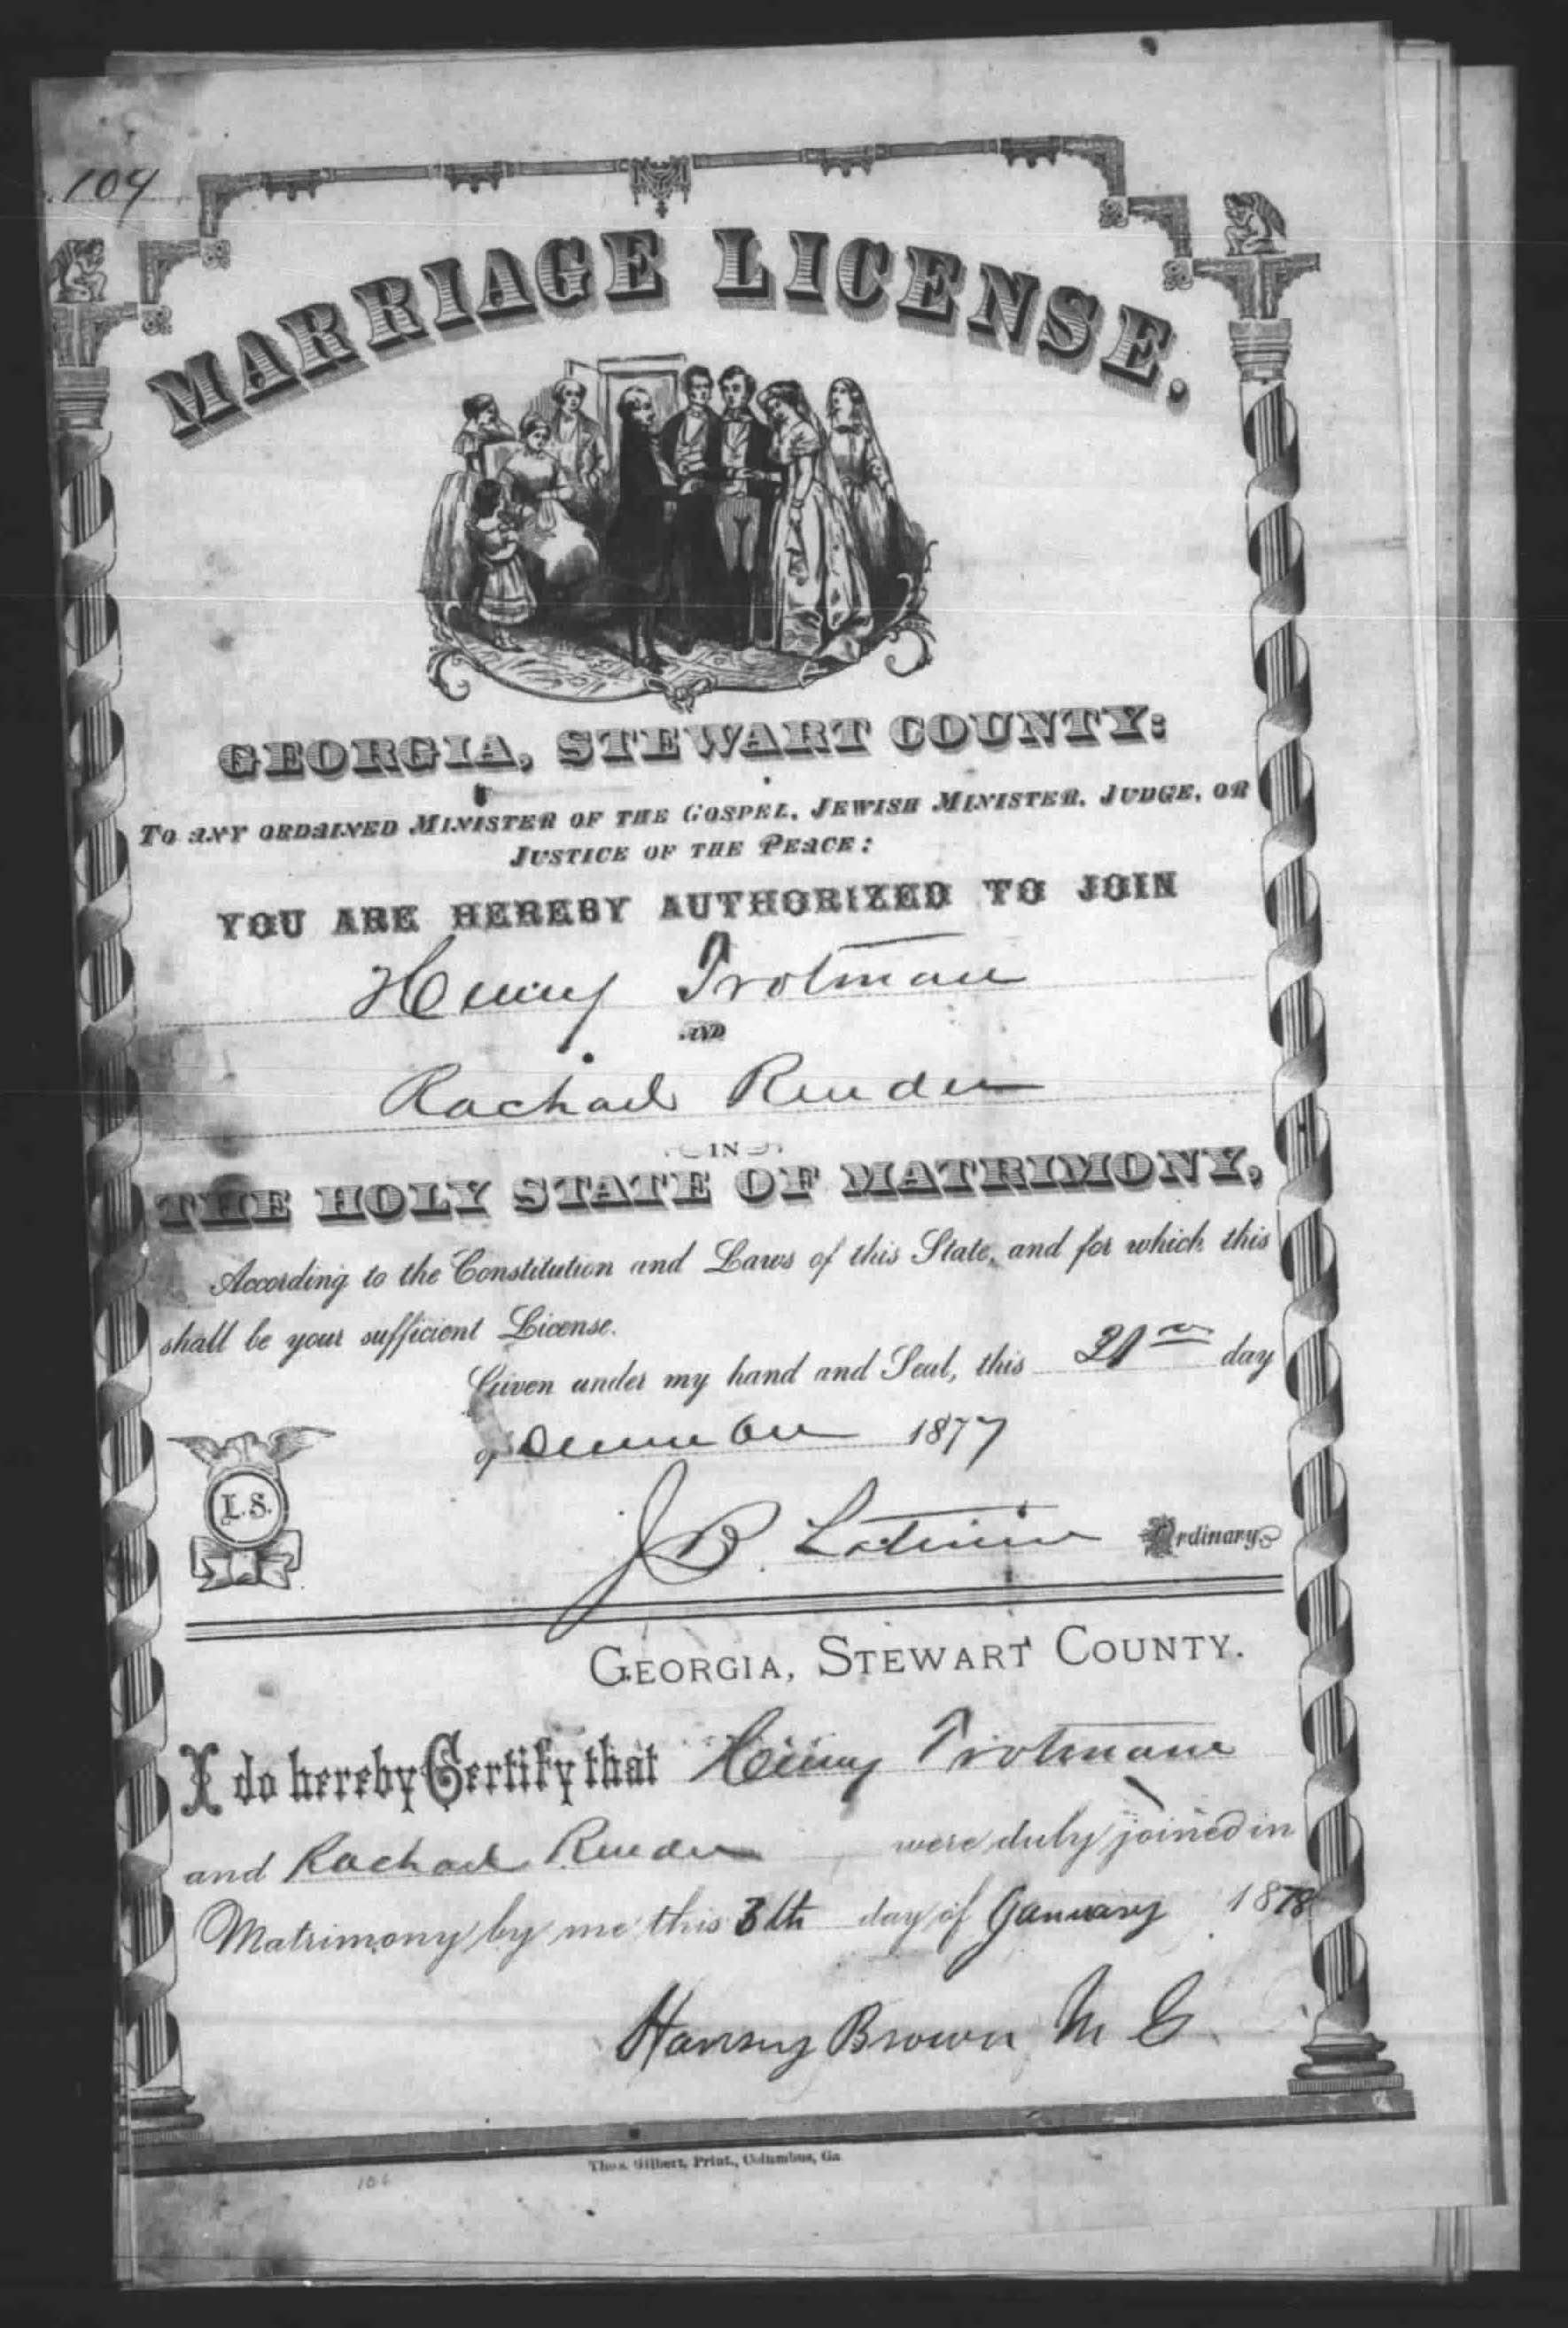 104
MARRIAGE LICENSE.
GEORGIA, STEWART COUNTY:
TO ANY ORDAINED MINISTER OF THE GOSPEL, JEWISH MINISTER, JUDGE, OR
JUSTICE OF THE PEACE:
YOU ARE HEREBY AUTHORIZED TO JOIN
Henry Trotman
AND
Rachael Render
IN
THE HOLY STATE OF MATRIMONY,
According to the Constitution and Laws of this State, and for which this
shall be your sufficient License.
Given under my hand and Seal, this day
of December 1877
L.S.
J B. Latimer Ordinary
GEORGIA, STEWART COUNTY.
I do hereby Certify that Henry Trotman
and Rachael Render were duly joined in
Matrimony by me this day of January 1878
Brown M G
Thos. Gilbert, Print., Columbus, Ga
106